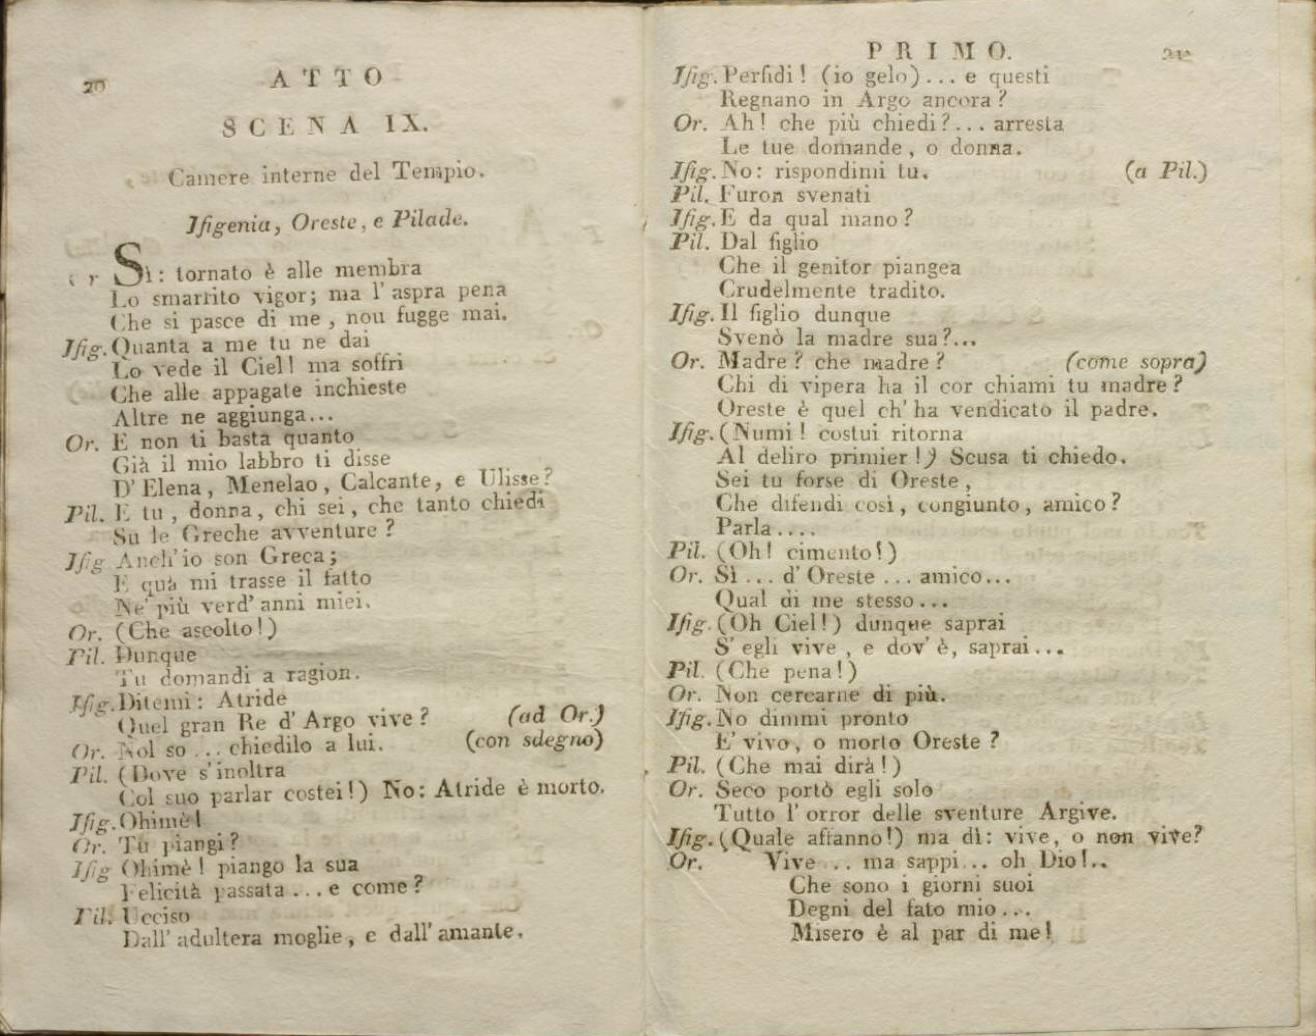 20
ATTO
SCENA IX.
Camere interne del Tempio.
Ifigenia, Oreste, e Pilade.
r Sì: tornato è alle membra
Lo smarrito vigor; ma l'aspra pena
Che si pasce di me, non fugge mai.
Ifig. Quanta a me tu ne dai
Lo vede il Ciel! ma soffri
Che alle appagate inchieste
Altre ne aggiunga...
Or. E non ti basta quanto
Già il mio labbro ti disse
D'Elena, Menelao, Calcante, e Ulisse?
Pil. E tu, donna, chi sei, che tanto chiedi
Su le Greche avventure?
Ifig Anch'io son Greca;
E quà mi trasse il fatto
Ne' più verd' anni miei.
Or. (Che ascolto!)
Pil. Dunque
Tu domandi a ragion.
Ifig. Ditemi: Atride
Quel gran Re d'Argo vive? (ad Or.)
Or. Nol so ... chiedilo a lui. (con sdegno)
Pil. (Dove s'inoltra
Col suo parlar costei!) No: Atride è morto.
Ifig. Ohimè!
Or. Tu piangi?
Ifig Ohimè! piango la sua
Felicità passata ... e come?
Pil. Ucciso
Dall' adultera moglie, e dall' amante.
PRIMO.
21
Ifig. Perfidi! (io gelo) ... e questi
Regnano in Argo ancora?
Or. Ah! che più chiedi?... arresta
Le tue domande, o donna.
Ifig. No: rispondimi tu. (a Pil.)
Pil. Furon svenati
Ifig. E da qual mano?
Pil. Dal figlio
Che il genitor piangea
Crudelmente tradito.
Ifig. Il figlio dunque
Svenò la madre sua?...
Or. Madre? che madre? (come sopra)
Chi di vipera ha il cor chiami tu madre?
Oreste è quel ch' ha vendicato il padre.
Ifig. (Numi! costui ritorna
Al deliro primier!) Scusa ti chiedo.
Sei tu forse di Oreste,
Che difendi così, congiunto, amico?
Parla....
Pil. (Oh! cimento!)
Or. Sì ... d'Oreste ... amico...
Qual di me stesso...
Ifig. (Oh Ciel!) dunque saprai
S' egli vive, e dov' è, saprai...
Pil. (Che pena!)
Or. Non cercarne di più.
Ifig. No dimmi pronto
E' vivo, o morto Oreste?
Pil. (Che mai dirà!)
Or. Seco portò egli solo
Tutto l' orror delle sventure Argive.
Ifig. (Quale affanno!) ma dì: vive, o non vive?
Or. Vive ... ma sappi ... oh Dio!..
Che sono i giorni suoi
Degni del fato mio ...
Misero è al par di me!